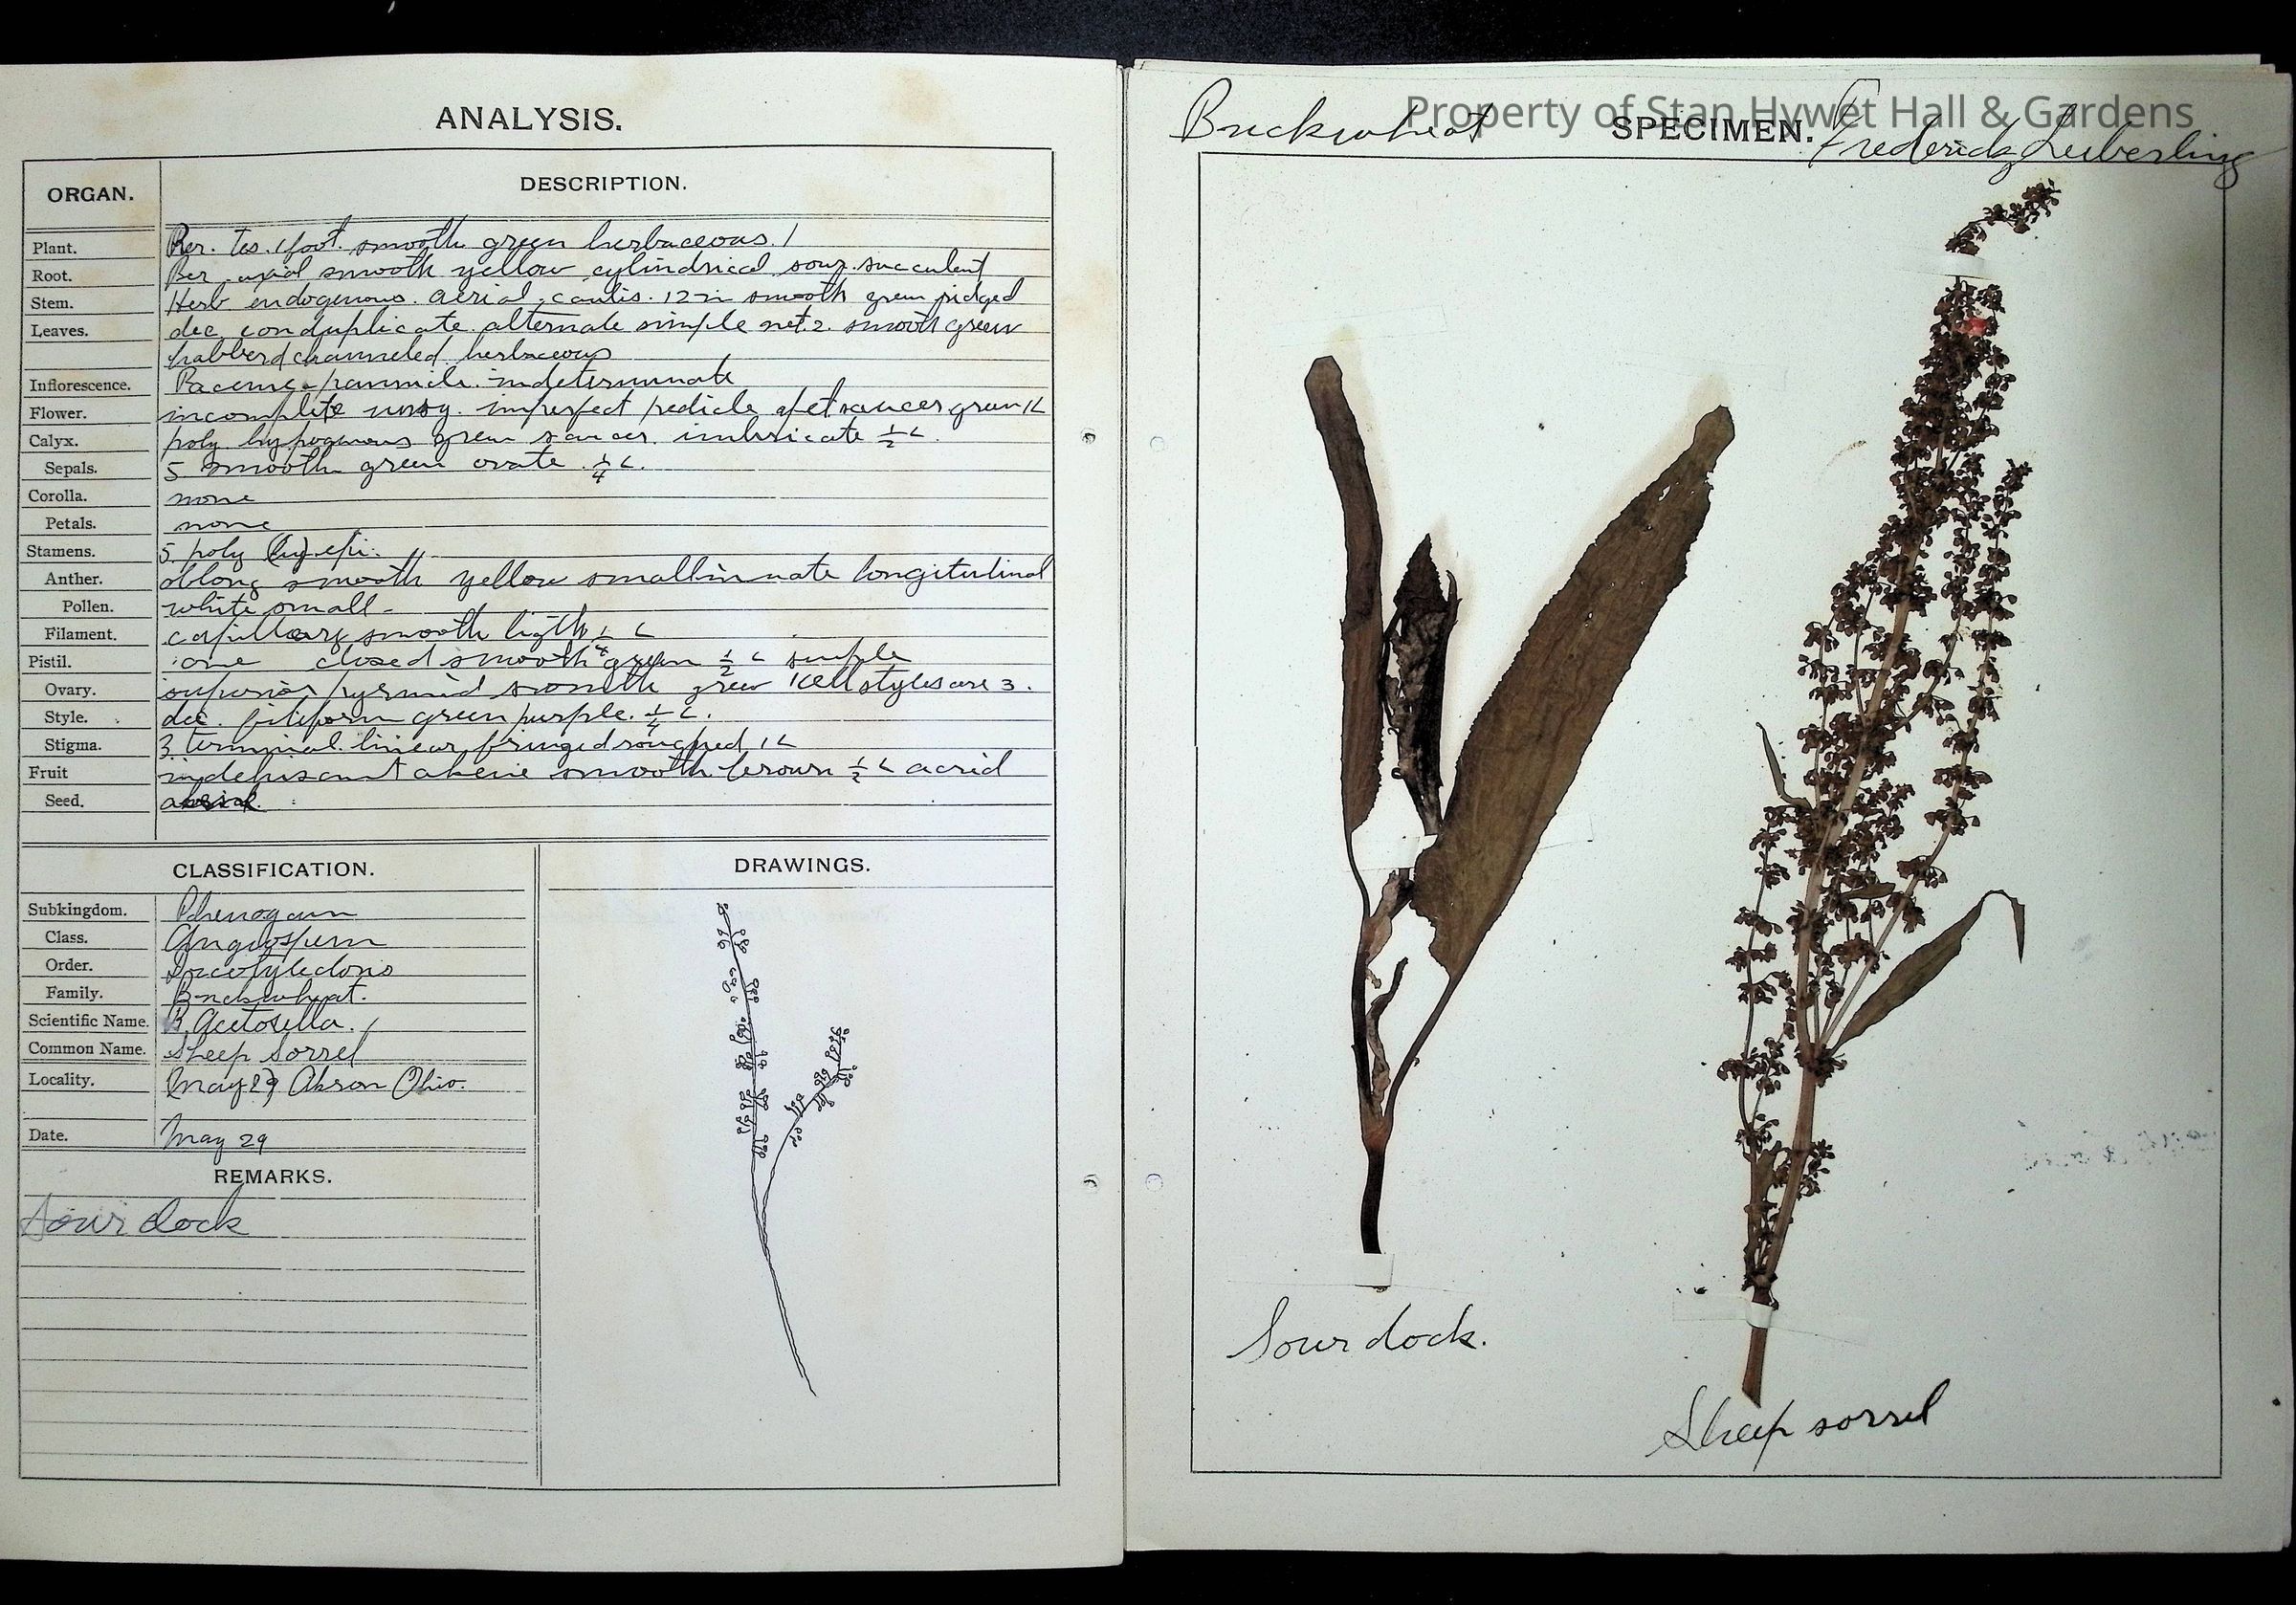 ANALYSIS.
ORGAN. DESCRIPTION.
Plant. Per. tes. 1 foot. smooth green herbaceous.
Root. Per. axial smooth yellow cylindrical sour succulent
Stem. Herb endogenous. aerial, caulis. 12 in smooth green ridged
Leaves. dec conduplicate alternate simple net. 2. smooth green
channeled herbaceous
Inflorescence. Raceme - pannicle. indeterminate
Flower. incomplete imperfect pedicle apet saucer green 1L
Calyx. poly hypogenous green saucer. imbricate 1/2 L.
Sepals. 5 smooth green ovate. 1/4 L.
Corolla. none
Petals. none
Stamens. 5 poly (hy) epi.
Anther. oblong smooth yellow small innate longitudinal
Pollen. white small -
Filament. capillary smooth ligth 1/4 L
Pistil. one closed smooth green 1/2 L simple
Ovary. superior pyrmid smooth green 1 cell styles are 3.
Style. dec. filiform green purple. 1/4 L.
Stigma. 3 terminal. linear fringed 1 L
Fruit indehiscent akene smooth brown 1/2 L acrid
Seed.
CLASSIFICATION.
Subkingdom. Phenogam
Class. Angiosperm
Order. Dicotyledons
Family. Buckwheat.
Scientific Name. Acetosella.
Common Name. Sheep Sorrel
Locality. (May 29) Akron Ohio.
Date. May 29
REMARKS.
Sour dock
DRAWINGS.
Buckwheat
SPECIMEN.
Frederick Seiberling
Property of Stan Hywet Hall & Gardens
Sour dock.
Sheep sorrel